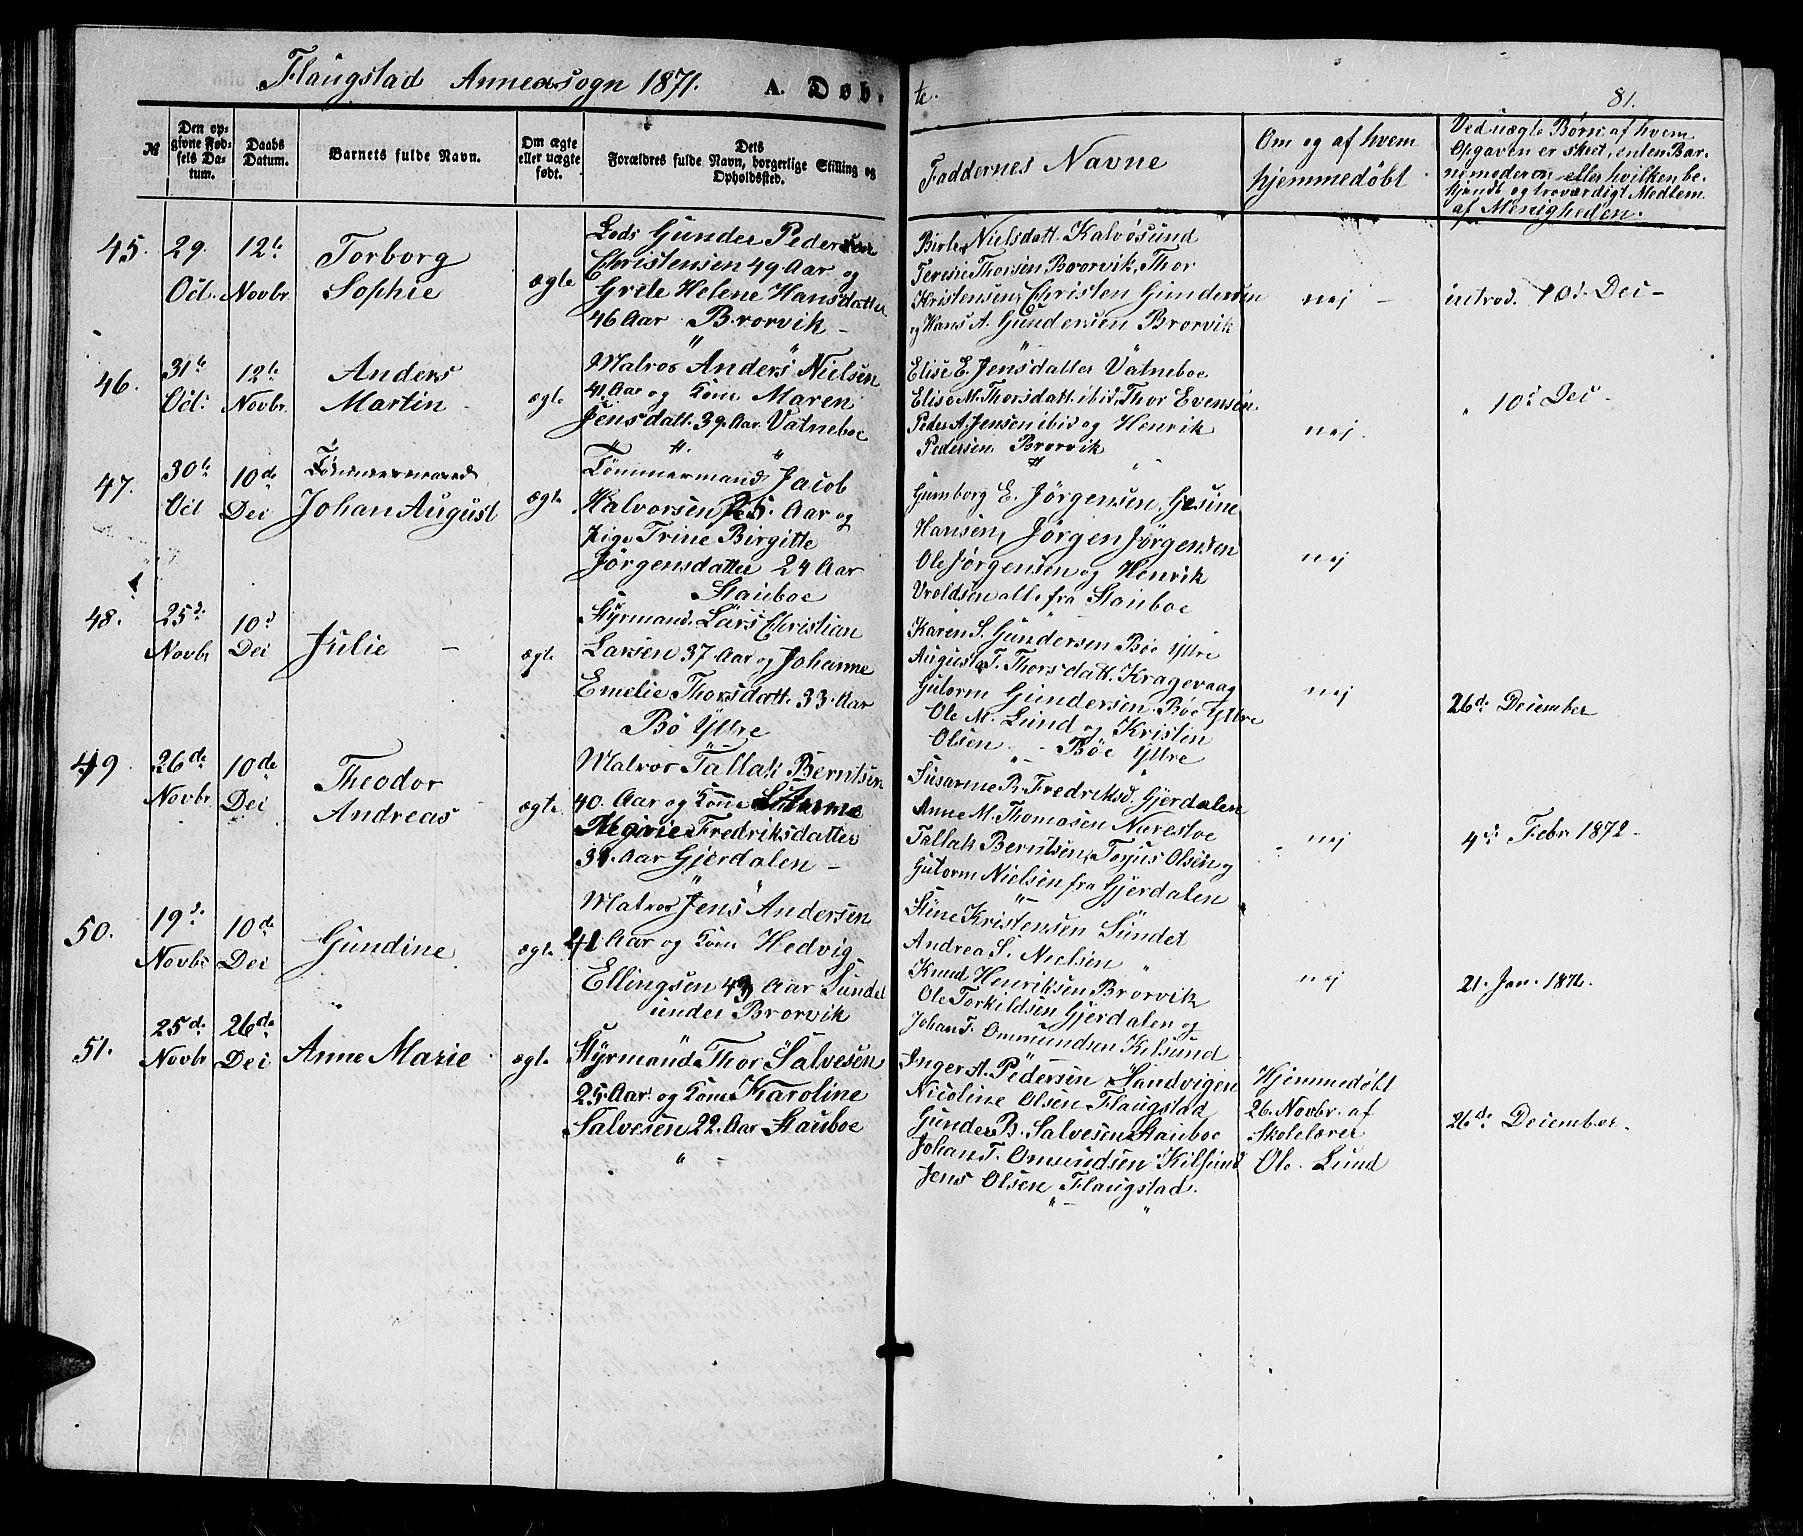 Flaugstad Annexsogn 1871. A. Døb-
te.
81.
№
Den op-
givne Fød-
sels Da-
tum.
Daabs
Datum.
Barnets fulde Navn.
Om ægte
eller uægte
født.
Dets
Forældres fulde Navn, borgerlige Stilling og
Opholdssted.
Faddernes Navne
Om og af hvem
hjemmedøbt
Ved uægte Børn: af hvem
Opgaven er skeet, enten Bar-
nemoderen eller hvilken be-
kjendt og troværdigt Medlem
af Menigheden.
45. 29. Oct. 12te Novbr
Torborg
Sophie
ægte
Lods Gunder Pedersen
Christensen 49 Aar og
Grete Helene Hansdatter
46 Aar Brorvik
Nielsdatt. Kalvøsund
Teresie Thorsen Brorvik, Thor
Kristensen, Christen Gundersen
og Hans A. Gundersen Brorvik
nej
introd. 10d. Dec
46. 31te Oct. 12te Novbr
Anders
Martin
ægte
Matros Anders Nielsen
41 Aar og Kone Maren
Jensdatt. 39 Aar Vatneboe
Elise E. Jensdatter Vatneboe
Elise M. Thorsdatt. ibid, Thor Evensen
Peder A. Jensen ibid og Henrik
Pedersen Brorvik
nej.
" 10d Dec
47. 30te Oct 10de Dec
Johan August
ægte
Tømmermand Jacob
Halvorsen 25 Aar og
Pige Trine Birgitte
Jørgensdatter 24 Aar
Stauboe
Gunborg E. Jørgensen, Gesine
Hansen, Jørgen Jørgensen
Ole Jørgensen og Henrik
Vroldsen alle fra Stauboe
nej
48. 25d. Novbr 10d Dec
Julie
ægte
Styrmand Lars Christian
Larsen 37 Aar og Johanne
Emelie Thorsdatt. 33 Aar
Bö Yttre
Karen S. Gundersen Böe Yttre
Augusta T. Thorsdatt. Kragevaag
Gutorm Gundersen Böe Yttre
Ole M. Lund og Kristin
Olsen Böe Yttre
nej
26d. December
49. 26de Novbr 10de Dec
Theodor
Andreas
ægte
Matros Tallak Berntsen
40 Aar og Kone
Fredriksdatter
Aar Gjerdalen
Susanne B. Fredriksd. Gjerdalen
Anne M. Thomasen Narestoe
Tallak Berntsen, Torjus Olsen og
Gutorm Nielsen fra Gjerdalen
nej
4d. Febr 1872
50. 19d. Novbr 10de Dec
Gundine
ægte
Matros Jens Andersen
41 Aar og Kone Hedvig
Ellingsen 43 Aar Sundet
under Brorvik
Stine Kristensen Sundet
Andrea S. Nielsen "
Knud Henriksen Brorvik
Ole Torkildsen Gjerdalen og
Johan T. Ommundsen Kilsund
nej
21. Jan. 1872.
51. 25de Novbr 26de Dec
Anne Marie
ægte
Styrmand Thor Salvesen
25 Aar og Kone Karoline
Salvesen 22 Aar Stauboe
Inger A. Pedersen Sandvigen
Nicoline Olsen Flaugstad
Gunder B. Salvesen Stauboe
Johan T. Omundsen Kilsund
Jens Olsen Flaugstad.
Hjemmedøbt
26. Novbr. af
Skolelærer
Ole Lund
26d. December.